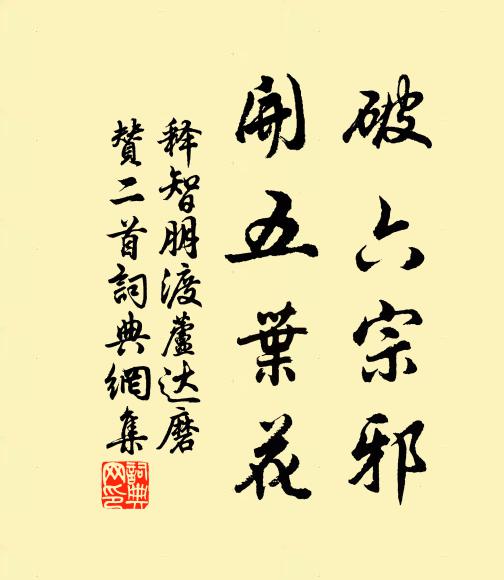 破六宗邪
開五葉花
释智朋渡蘆达磨
贊二首詞典網集
詞典网印